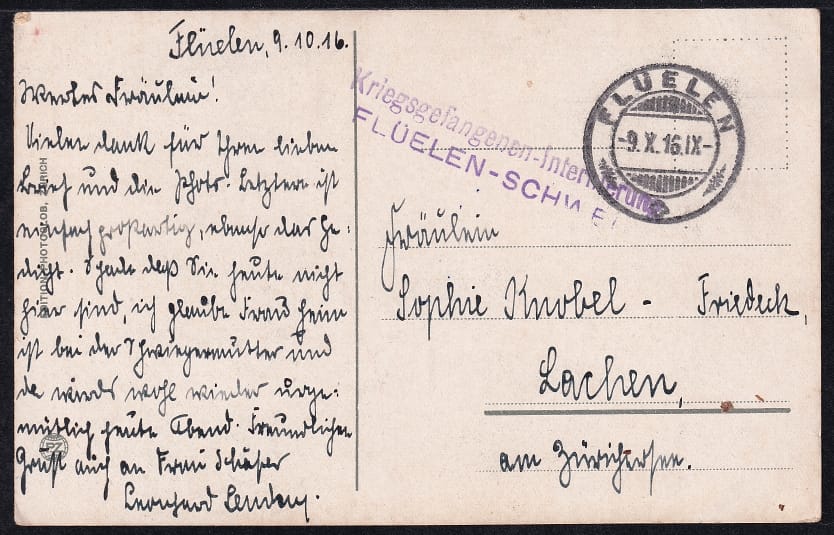 Flüelen, 9.10.16.
Wertes Fräulein!
Vielen dank für Ihren lieben
Brief und die Photo. Letztere ist
einfach großartig, ebenso das Ge-
dicht. Schade daß Sie heute nicht
hier sind, ich glaube Frau Heim
ist bei der Schwiegermutter und
da wirds wohl wieder urge-
mütlich heute Abend. Freundlichen
Gruß auch an Frau
Leonhard
EDITION PHOTOGLOB, ZÜRICH
PZ
Kriegsgefangenen-Internierung
FLÜELEN-SCHWEI
FLÜELEN
-9.X.16.IX-
Fräulein
Sophie Knobel - Friedeck,
Lachen,
am Zürichersee.